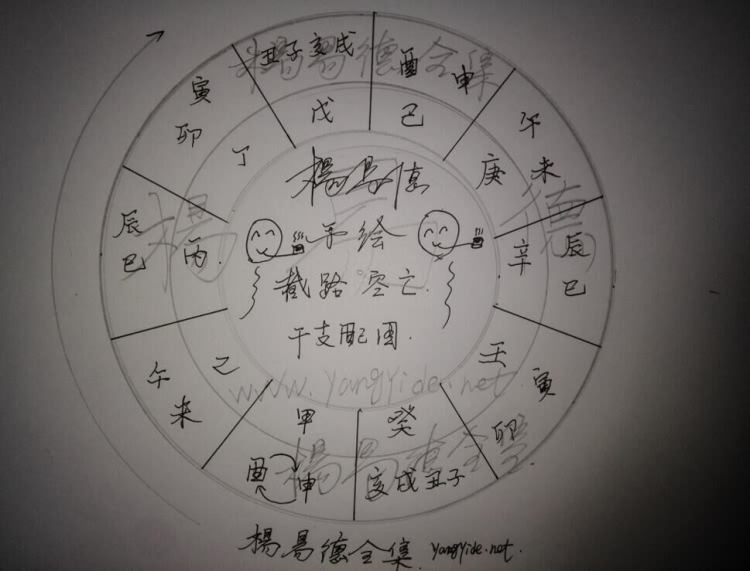 丑子亥戌
戊
酉申
己
午未
庚
辰巳
辛
寅卯
壬
亥戌丑子
癸
酉申
甲
午未
乙
辰巳
丙
寅卯
丁
楊易德
手绘
截路空亡.
干支配图.
楊易德全集
楊易德
www.yangyide.net
楊易德全集.
楊易德全集. yangyide.net.